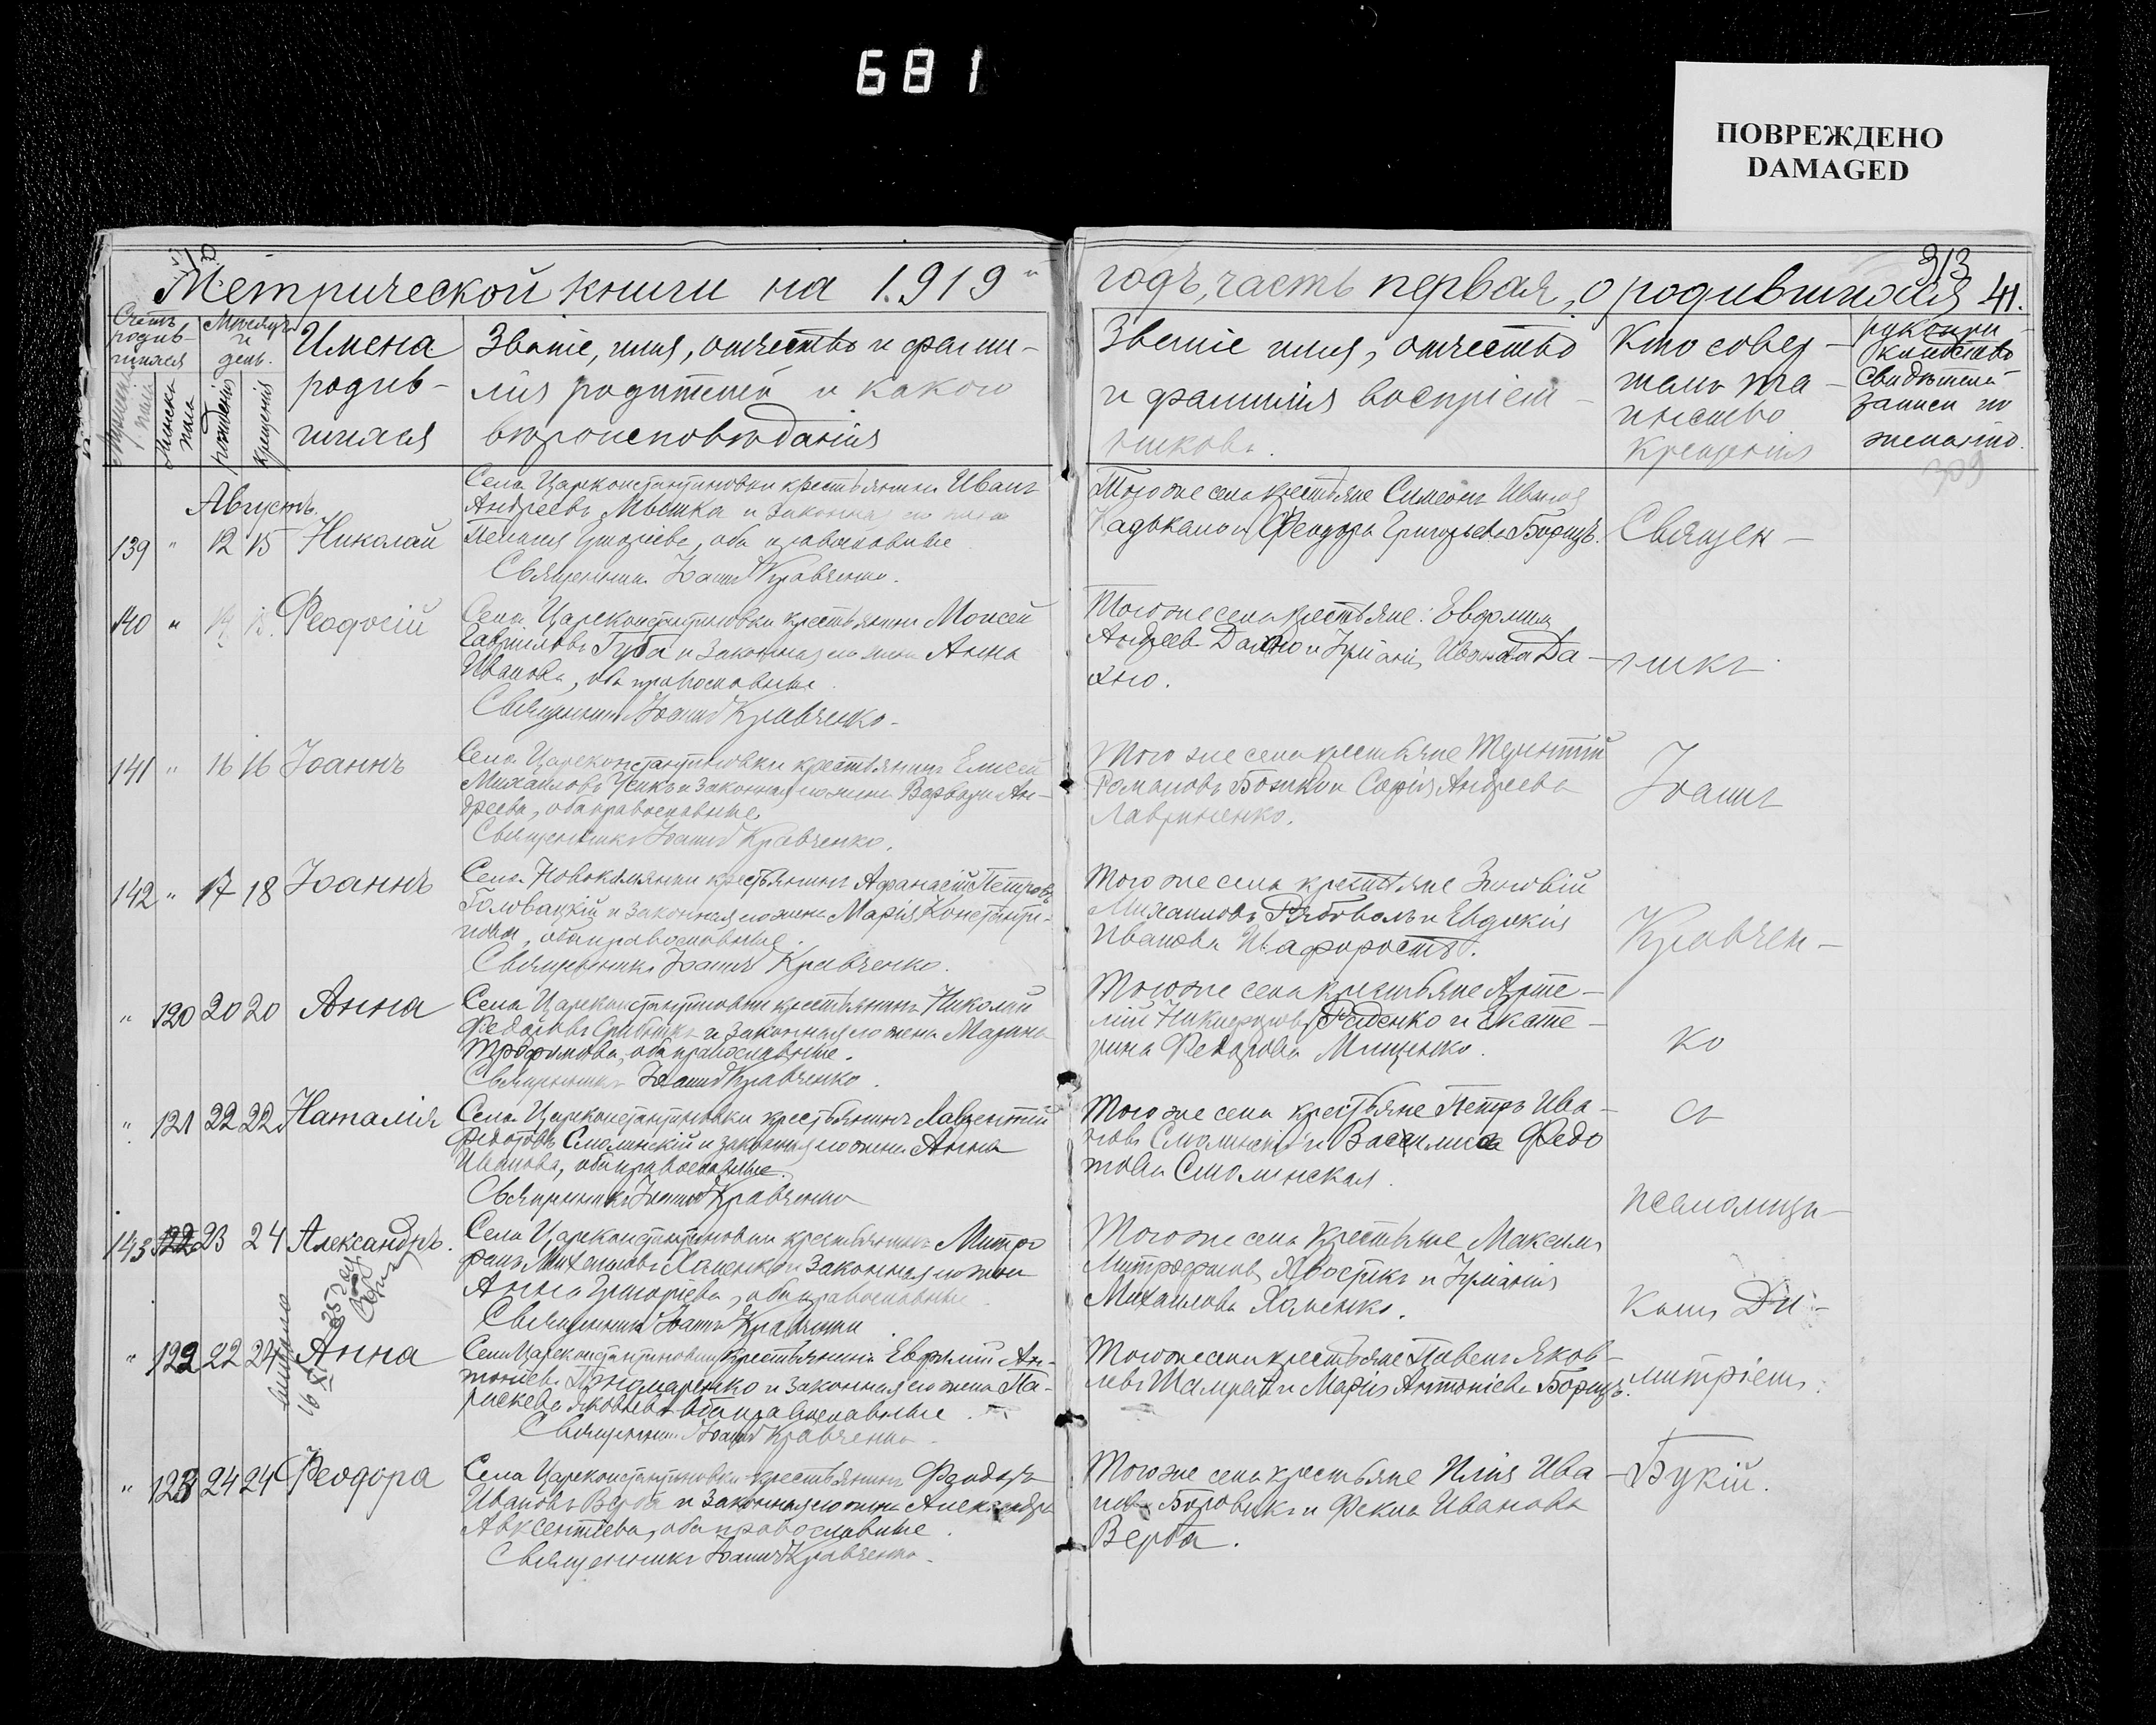 681
ПОВРЕЖДЕНО
DAMAGED
Метрической книги на 1919
годъ, часть первая, о родившихся
313
41.
Счетъ родив-шихся
Мѣсяцъ и день.
рожденія
крещенія
Имена
родив-
шихся
Званіе, имя, отчество и фами-
лія родителей и какого
вѣроисповѣданія
Званіе имя, отчество
и фамилія воспріем-
никовъ.
Кто совер-
шалъ та-
инство
крещенія
рукопри-
кладство
свидѣтелей
записи по
желанію.
309
Августъ.
139 " 12 15 Николай
Села Цареконстантиновки крестьянинъ Иванъ
Андреевъ Мышка и законная его жена
Пелагія, оба православные
Священникъ Іоаннъ Кравченко.
Того же села крестьяне Симеонъ Ивановъ
и Феодора Григорьева Борищъ.
140 " Феодосій
Села Цареконстантиновки крестьянинъ Моисей
Гавриловъ Губа и законная его жена Анна
Иванова, оба православные.
Священникъ Іоаннъ Кравченко.
Того же села крестьяне: Евфимій
Андреевъ Дахно и Іуліанія Иванова Да-
хно.
141 " 16 16 Іоаннъ
Села Цареконстантиновки крестьянинъ Елисей
Михаиловъ Усикъ и законная его жена Варвара Ан-
дреева, оба православные
Священникъ Іоаннъ Кравченко.
Того же села крестьяне Терентій
Романовъ Божко и Софія Андреева
Лавриненко.
142 " 17 18 Іоаннъ
Села Новокамянки крестьянинъ Афанасій Петровъ
Головацкій и законная его жена Марія Константи-
нова, оба православные.
Священникъ Іоаннъ Кравченко.
Того же села крестьяне Зиновій
Михаиловъ Рябоволъ и Евдокія
Иванова.
" 120 20 20 Анна
Села Цареконстантиновки крестьянинъ Николай
Федоровъ и законная его жена Марина
Трофимова, оба православные.
Священникъ Іоаннъ Кравченко.
Того же села крестьяне Арте-
мій Никифоровъ Реденко и Екате-
рина Федорова Мищенко.
" 121 22 22 Наталія
Села Цареконстантиновки крестьянинъ Лаврентій
Федотовъ Смолинскій и законная его жена Анна
Иванова, оба православные.
Священникъ Іоаннъ Кравченко
Того же села крестьяне Петръ Ива-
новъ Смолинскій и Василиса Федо
това Смолинская.
143 122 23 24 Александръ.
Села Цареконстантиновки крестьянинъ Митро
фанъ Михаиловъ Хоменко и законная его жена
Анна Григоріева, оба православные
Священникъ Іоаннъ Кравченко
Того же села крестьяне Максимъ
Митрофановъ Хвостикъ и Іуліанія
Михаилова Хоменко.
" 122 22 24 Анна
Села Цареконстантиновки крестьянинъ Евфимій Ан-
тоніевъ Пономаренко и законная его жена Па-
раскева Яковлева оба православные.
Священникъ Іоаннъ Кравченко.
Того же села крестьяне Павелъ Яков-
левъ Шамрай и Марія Антоніева Борищъ.
" 123 24 24 Феодора
Села Цареконстантиновки крестьянинъ Феодоръ
Ивановъ Верба и законная его жена Александра
Авксентіева, оба православные.
Священникъ Іоаннъ Кравченко.
Того же села крестьяне Илія Ива-
новъ Боровикъ и Фекла Иванова
Верба.
Священ-
никъ
Іоаннъ
Кравчен-
ко
съ
псаломщи-
комъ Ди-
митріемъ
Букій.